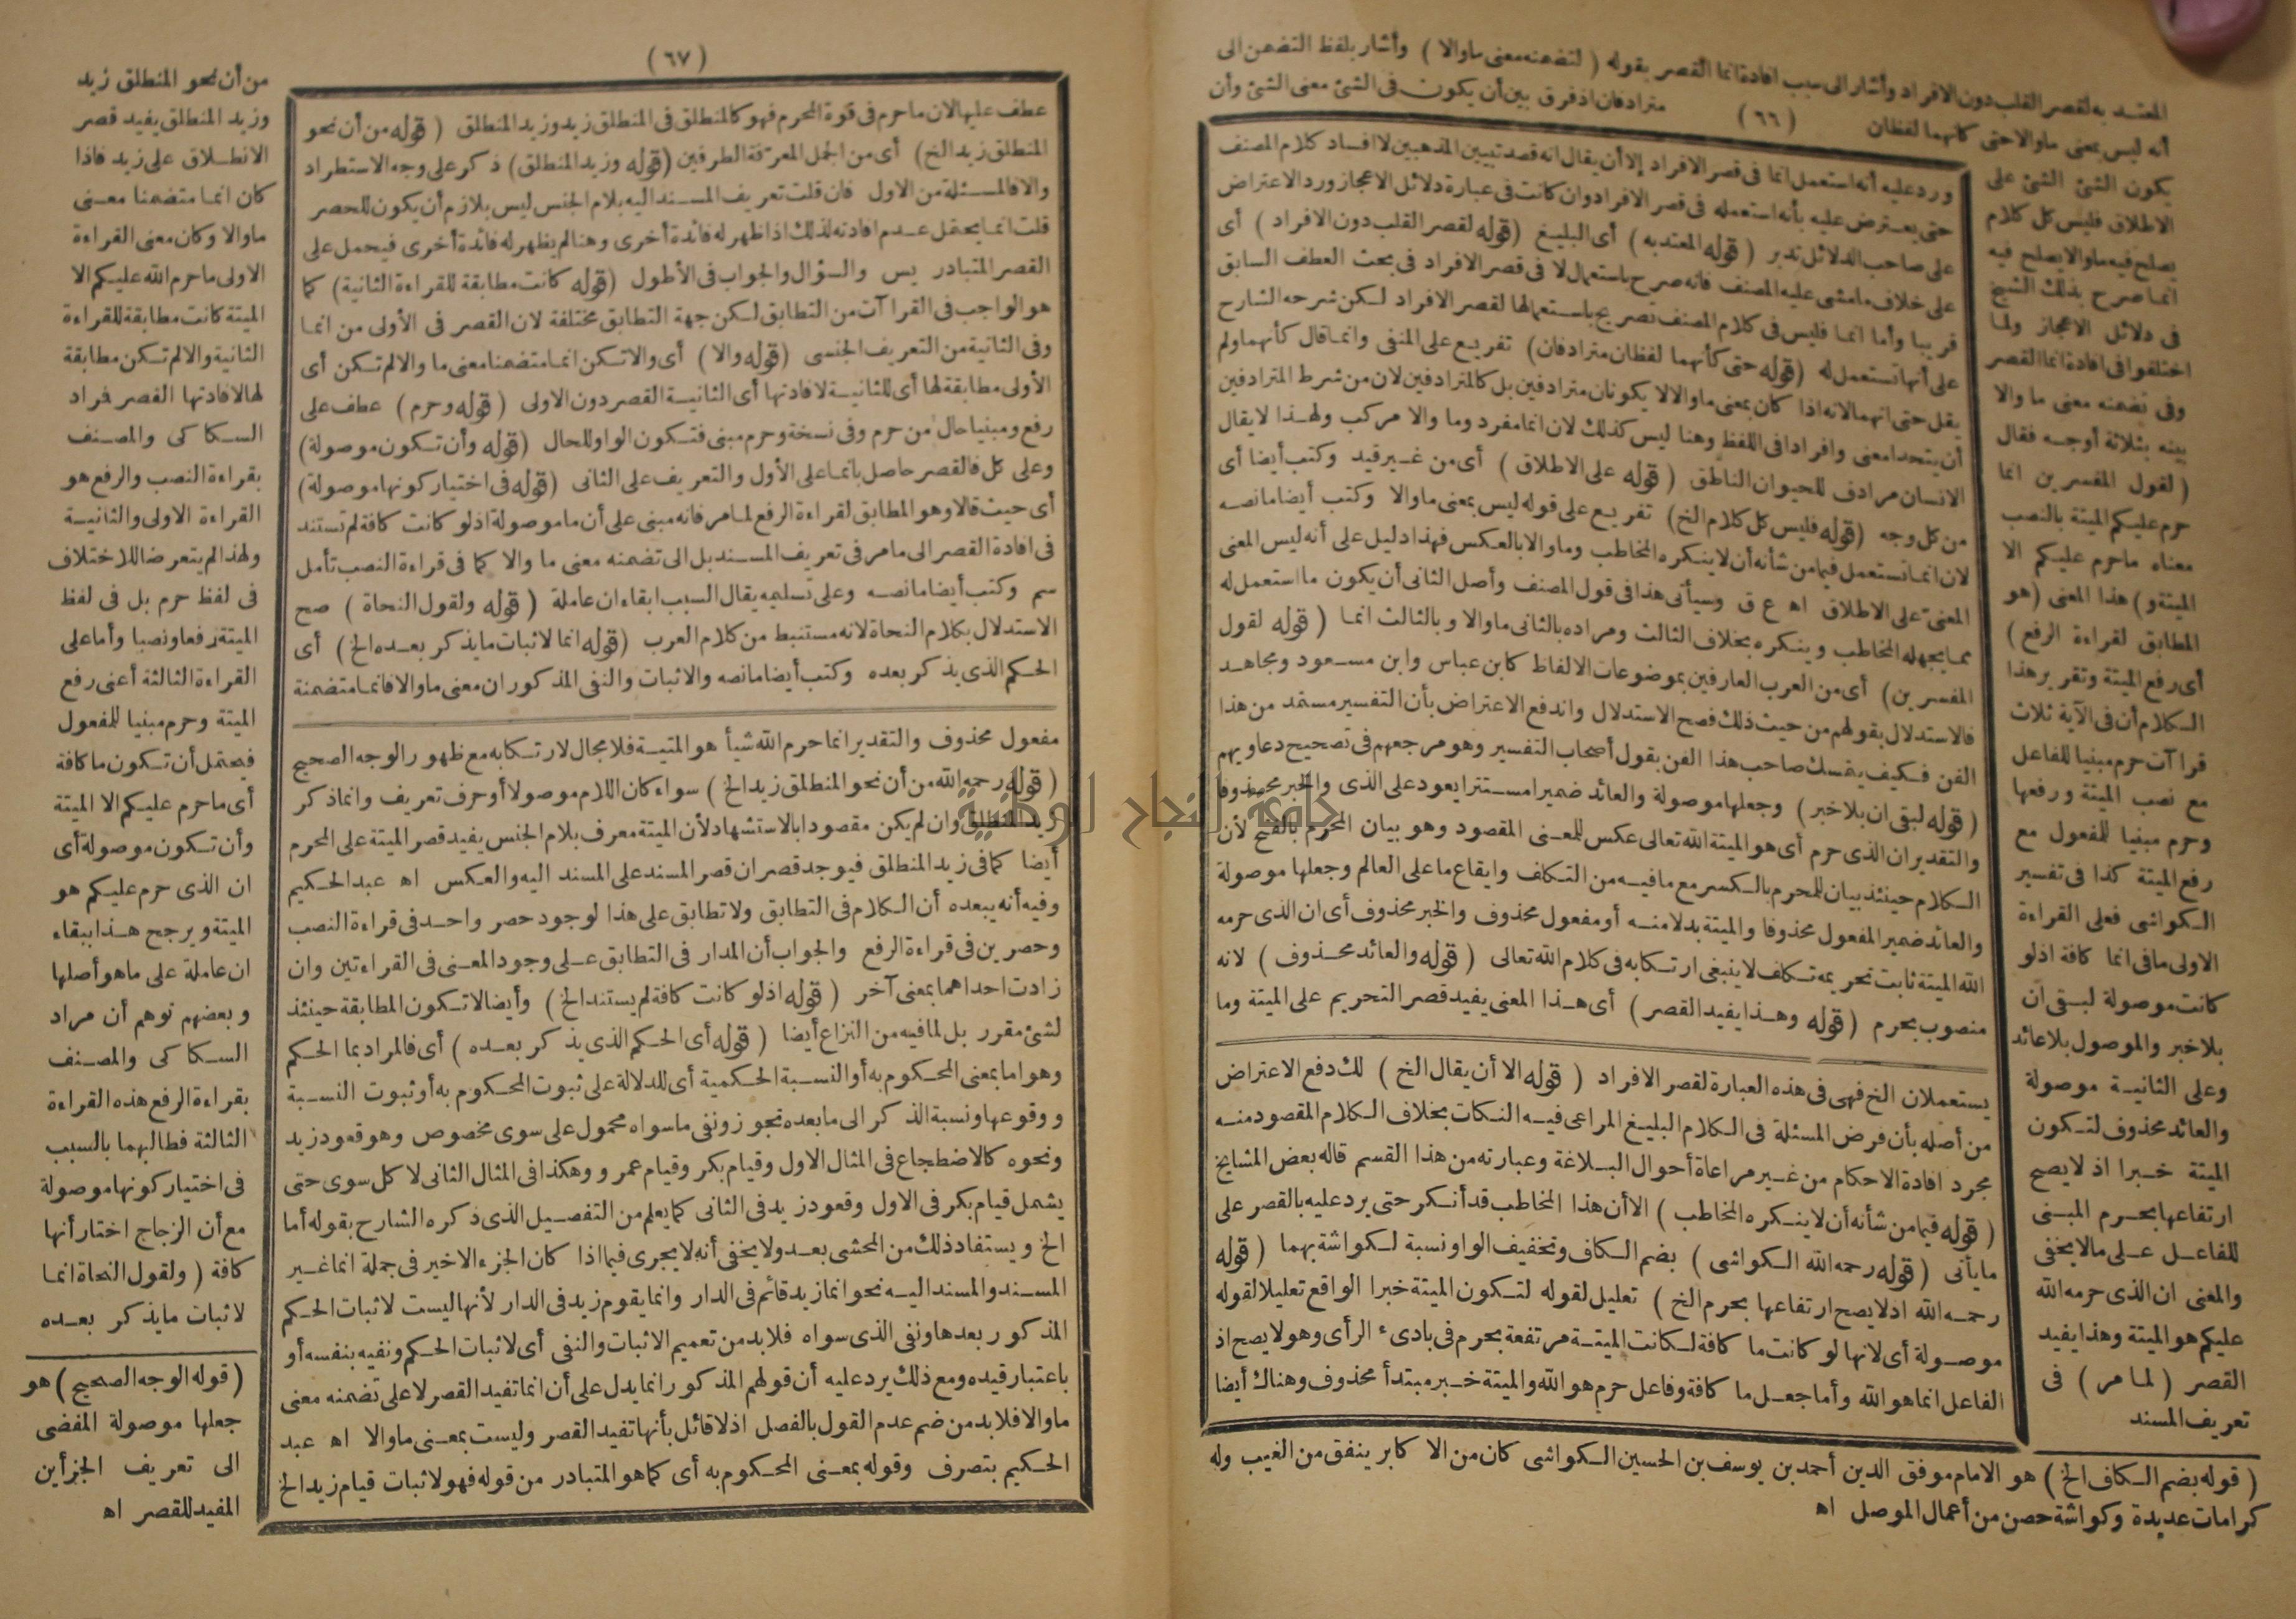 المعتد به لقصر القلب دون الافراد وأشار الى سبب افادة انما القصر بقوله ( لتضمنه معنى ما والا ) وأشار بلفظ التضمن الى
( ٦٦ )
أنه ليس بمعنى ما والا حتى كانهما لفظان مترادفان اذ فرق بين أن يكون فى الشئ معنى الشئ وأن
يكون الشئ الشئ على
الاطلاق فليس كل كلام
يصلح فيه ما والا يصلح فيه
انما صرح بذلك الشيخ
فى دلائل الاعجاز ولما
اختلفوا فى افادة انما القصر
وفى تضمنه معنى ما والا
بينه بثلاثة أوجه فقال
( لقول المفسرين انما
حرم عليكم الميتة بالنصب
معناه ماحرم عليكم الا
الميتة و) هذا المعنى (هو
المطابق لقراءة الرفع )
أى رفع الميتة وتقرير هذا
الكلام أن فى الآية ثلاث
قرا آت حرم مبنيا للفاعل
مع نصب الميتة ورفعها
وحرم مبنيا للمفعول مع
رفع الميتة كذا فى تفسير
الكواشى فعلى القراءة
الاولى ما فى انما كافة اذ لو
كانت موصولة لبقى ان
بلا خبر والموصول بلا عائد
وعلى الثانية موصولة
والعائد محذوف لتكون
الميتة خبرا اذ لا يصح
ارتفاعها بحرم المبنى
للفاعل على مالا يخفى
والمعنى ان الذى حرمه الله
عليكم هو الميتة وهذا يفيد
القصر ( لما مر ) فى
تعريف المسند
ورد عليه أنه استعمل انما فى قصر الافراد إلا أن يقال انه قصد تبيين المذهبين لا افساد كلام المصنف
حتى يعترض عليه بأنه استعمله فى قصر الافراد وان كانت فى عبارة دلائل الاعجاز ورد الاعتراض
على صاحب الدلائل تدبر ( قوله المعتد به ) أى البليغ (قوله لقصر القلب دون الافراد ) أى
على خلاف ما مشى عليه المصنف فانه صرح باستعمال لا فى قصر الافراد فى بحث العطف السابق
قريبا وأما انما فليس فى كلام المصنف تصريح باستعمالها لقصر الافراد لكن شرحه الشارح
على أنها تستعمل له (قوله حتى كأنهما لفظان مترادفان) تفريع على المنفى وانما قال كأنهما ولم
يقل حتى انهما لانه اذا كان بمعنى ما والا لا يكونان مترادفين بل كالمترادفين لان من شرط المترادفين
أن يتحدا معنى وافرادا فى اللفظ وهنا ليس كذلك لان انما مفرد وما والا مركب ولهذا لا يقال
الانسان مرادف للحيوان الناطق ( قوله على الاطلاق ) أى من غير قيد وكتب أيضا أى
من كل وجه (قوله فليس كل كلام الخ) تفريع على قوله ليس بمعنى ما والا وكتب أيضا مانصه
لان انما تستعمل فيما من شأنه أن لا ينكره المخاطب وما والا بالعكس فهذا دليل على أنه ليس المعنى
المعنى على الاطلاق اه ع ق وسيأتى هذا فى قول المصنف وأصل الثانى أن يكون ما استعمل له
مما يجهله المخاطب وينكره بخلاف الثالث ومراده بالثانى ما والا وبالثالث انما ( قوله لقول
المفسرين) أى من العرب العارفين بموضوعات الالفاظ كابن عباس وابن مسعود ومجاهد
فالاستدلال بقولهم من حيث ذلك فصح الاستدلال واندفع الاعتراض بأن التفسير مستمد من هذا
الفن فكيف يتمسك صاحب هذا الفن بقول أصحاب التفسير وهو مرجعهم فى تصحيح دعاويهم
( قوله لبقى ان بلا خبر ) وجعلها موصولة والعائد ضميرا مستترا يعود على الذى والخبر محذوفا
والتقدير ان الذى حرم أى هو الميتة الله تعالى عكس للمعنى المقصود وهو بيان المحرم بالفتح لأن
الكلام حينئذ بيان للمحرم بالكسر مع مافيه من التكلف وايقاع ما على العالم وجعلها موصولة
والعائد ضمير المفعول محذوفا والميتة بدلا منه أو مفعول محذوف والخبر محذوف أى ان الذى حرمه
الله الميتة ثابت تحريمه تكلف لا ينبغى ارتكابه فى كلام الله تعالى ( قوله والعائد محذوف ) لانه
منصوب بحرم (قوله وهذا يفيد القصر ) أى هذا المعنى يفيد قصر التحريم على الميتة وما
يستعملان الخ فهى فى هذه العبارة لقصر الافراد ( قوله الا أن يقال الخ ) لك دفع الاعتراض
من أصله بأن فرض المسئلة فى الكلام البليغ المراعى فيه النكات بخلاف الكلام المقصود منه
مجرد افادة الاحكام من غير مراعاة أحوال البلاغة وعبارته من هذا القسم قاله بعض المشايخ
( قوله فيما من شأنه أن لا ينكره المخاطب ) الا أن هذا المخاطب قد أنكر حتى يرد عليه بالقصر على
مايأتى ( قوله رحمه الله الكواشى ) بضم الكاف وتخفيف الواو نسبة لكواشة بهما (قوله
رحمه الله اذ لا يصح ارتفاعها بحرم الخ ) تعليل لقوله لتكون الميتة خبرا الواقع تعليلا لقوله
موصولة أى لانها لو كانت ما كافة لكانت الميتة مرتفعة بحرم فى بادىء الرأى وهو لا يصح اذ
الفاعل انما هو الله وأما جعل ما كافة وفاعل حرم هو الله والميتة خبر مبتدأ محذوف وهناك أيضا
( قوله بضم الكاف الخ ) هو الامام موفق الدين أحمد بن يوسف بن الحسين الكواشى كان من الا كابر ينفق من الغيب وله
كرامات عديدة وكواشة حصن من أعمال الموصل اه
( ٦٧ )
من أن نحو المنطلق زيد
وزيد المنطلق يفيد قصر
الانطلاق على زيد فاذا
كان انما متضمنا معنى
ما والا وكان معنى القراءة
الاولى ماحرم الله عليكم الا
الميتة كانت مطابقة للقراءة
الثانية والا لم تكن مطابقة
لها لافادتها القصر فراد
السكاكى والمصنف
بقراءة النصب والرفع هو
القراءة الاولى والثانية
ولهذا لم يتعرضا للاختلاف
فى لفظ حرم بل فى لفظ
الميتة رفعا ونصبا وأما على
القراءة الثالثة أعنى رفع
الميتة وحرم مبنيا للمفعول
فيحتمل أن تكون ما كافة
أى ماحرم عليكم الا الميتة
وأن تكون موصولة أى
ان الذى حرم عليكم هو
الميتة ويرجح هذا ببقاء
ان عاملة على ماهو أصلها
وبعضهم توهم أن مراد
السكاكى والمصنف
بقراءة الرفع هذه القراءة
الثالثة فطالبهما بالسبب
فى اختيار كونها موصولة
مع أن الزجاج اختار أنها
كافة ( ولقول النحاة انما
لاثبات مايذكر بعده
عطف عليها لان ماحرم فى قوة المحرم فهو كالمنطلق فى المنطلق زيد وزيد المنطلق ( قوله من أن نحو
المنطلق زيد الخ) أى من الجمل المعرّفة الطرفين (قوله وزيد المنطلق) ذكر على وجه الاستطراد
والا فالمسئلة من الاول فان قلت تعريف المسند اليه بلام الجنس ليس بلازم أن يكون للحصر
قلت انما يحتمل عدم افادته لذلك اذا ظهر له فائدة أخرى وهنا لم يظهر له فائدة أخرى فيحمل على
القصر المتبادر يس والسؤال والجواب فى الأطول (قوله كانت مطابقة للقراءة الثانية) كما
هو الواجب فى القرا آت من التطابق لكن جهة التطابق مختلفة لان القصر فى الأولى من انما
وفى الثانية من التعريف الجنسى (قوله والا) أى والا تكن انما متضمنا معنى ما والا لم تكن أى
الأولى مطابقة لها أى للثانية لافادتها أى الثانية القصر دون الاولى ( قوله وحرم ) عطف على
رفع ومبنيا حال من حرم وفى نسخة وحرم مبنى فتكون الواو للحال (قوله وأن تكون موصولة)
وعلى كل فالقصر حاصل بانما على الأول والتعريف على الثانى (قوله فى اختيار كونها موصولة)
أى حيث قالا وهو المطابق لقراءة الرفع لما مر فانه مبنى على أن ما موصولة اذ لو كانت كافة لم تستند
فى افادة القصر الى مامر فى تعريف المسند بل الى تضمنه معنى ما والا كما فى قراءة النصب تأمل
سم وكتب أيضا مانصه وعلى تسليمه يقال السبب ابقاء ان عاملة ( قوله ولقول النحاة ) صح
الاستدلال بكلام النحاة لانه مستنبط من كلام العرب (قوله انما لاثبات مايذكر بعده الخ) أى
الحكم الذى يذكر بعده وكتب أيضا مانصه والاثبات والنفى المذكوران معنى ما والا فانما متضمنة
مفعول محذوف والتقدير انما حرم الله شيأ هو الميتة فلا مجال لارتكابه مع ظهور الوجه الصحيح
( قوله رحمه الله من أن نحو المنطلق زيد الخ ) سواء كان اللام موصولا أو حرف تعريف وانما ذكر
زيد المنطلق وان لم يكن مقصودا بالاستشهاد لأن الميتة معرف بلام الجنس يفيد قصر الميتة على المحرم
أيضا كما فى زيد المنطلق فيوجد قصران قصر المسند على المسند اليه والعكس اه عبد الحكيم
وفيه أنه يبعده أن الكلام فى التطابق ولا تطابق على هذا لوجود حصر واحد فى قراءة النصب
وحصرين فى قراءة الرفع والجواب أن المدار فى التطابق على وجود المعنى فى القراءتين وان
زادت احداهما بمعنى آخر ( قوله اذ لو كانت كافة لم يستند الخ ) وأيضا لا تكون المطابقة حينئذ
لشئ مقرر بل لما فيه من النزاع أيضا ( قوله أى الحكم الذى يذكر بعده ) أى فالمراد بما الحكم
وهو اما بمعنى المحكوم به أو النسبة الحكمية أى للدلالة على ثبوت المحكوم به أو ثبوت النسبة
ووقوعها ونسبة الذكر الى مابعده تجوز ونفى ماسواه محمول على سوى مخصوص وهو قعود زيد
ونحوه كالاضطجاع فى المثال الاول وقيام بكر وقيام عمرو وهكذا فى المثال الثانى لا كل سوى حتى
يشمل قيام بكر فى الاول وقعود زيد فى الثانى كما يعلم من التفصيل الذى ذكره الشارح بقوله أما
الخ ويستفاد ذلك من المحشى بعد ولا يخفى أنه لا يجرى فيما اذا كان الجزء الاخير فى جملة انما غير
المسند والمسند اليه نحو انما زيد قائم فى الدار وانما يقوم زيد فى الدار لأنها ليست لاثبات الحكم
المذكور بعدها ونفى الذى سواه فلا بد من تعميم الاثبات والنفى أى لاثبات الحكم ونفيه بنفسه أو
باعتبار قيده ومع ذلك يرد عليه أن قولهم المذكور انما يدل على أن انما تفيد القصر لا على تضمنه معنى
ما والا فلا بد من ضم عدم القول بالفصل اذ لا قائل بأنها تفيد القصر وليست بمعنى ما والا اه عبد
الحكيم بتصرف وقوله بمعنى المحكوم به أى كما هو المتبادر من قوله فهو لاثبات قيام زيد الخ
( قوله الوجه الصحيح ) هو
جعلها موصولة المفضى
الى تعريف الجزأين
المفيد للقصر اه
جامعة النجاح الوطنية